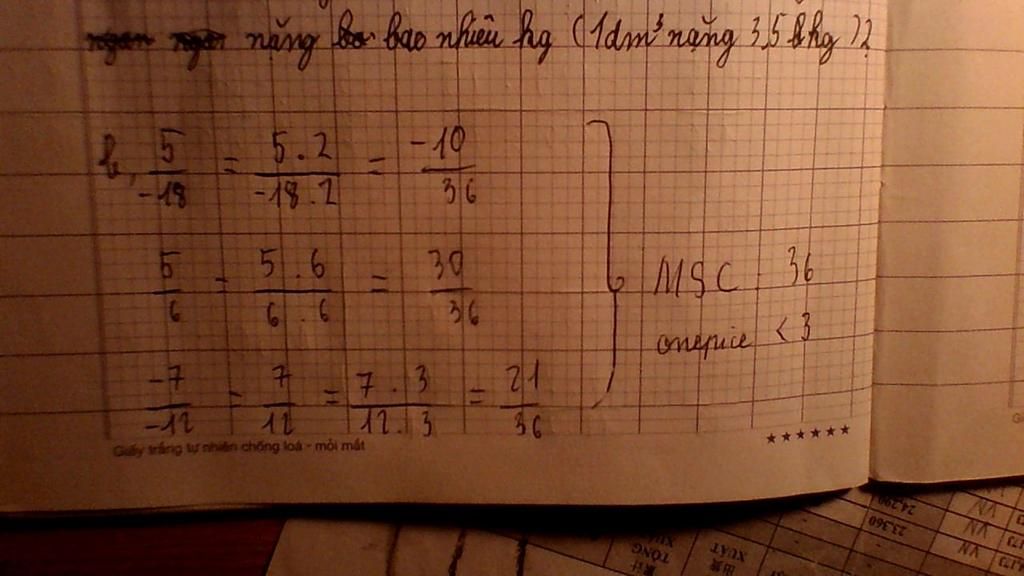 nặng bao nhiêu kg (1dm³ nặng 3,5 kg)?
b, 5/-18 = 5.2/-18.2 = -10/36
5/6 = 5.6/6.6 = 30/36
-7/-12 = 7/12 = 7.3/12.3 = 21/36
MSC: 36
onepice <3
Giấy trắng tự nhiên chống loá - mỏi mắt
★★★★★★
XUẤT
TỒNG
24.290
23.360
VN
VN
VN